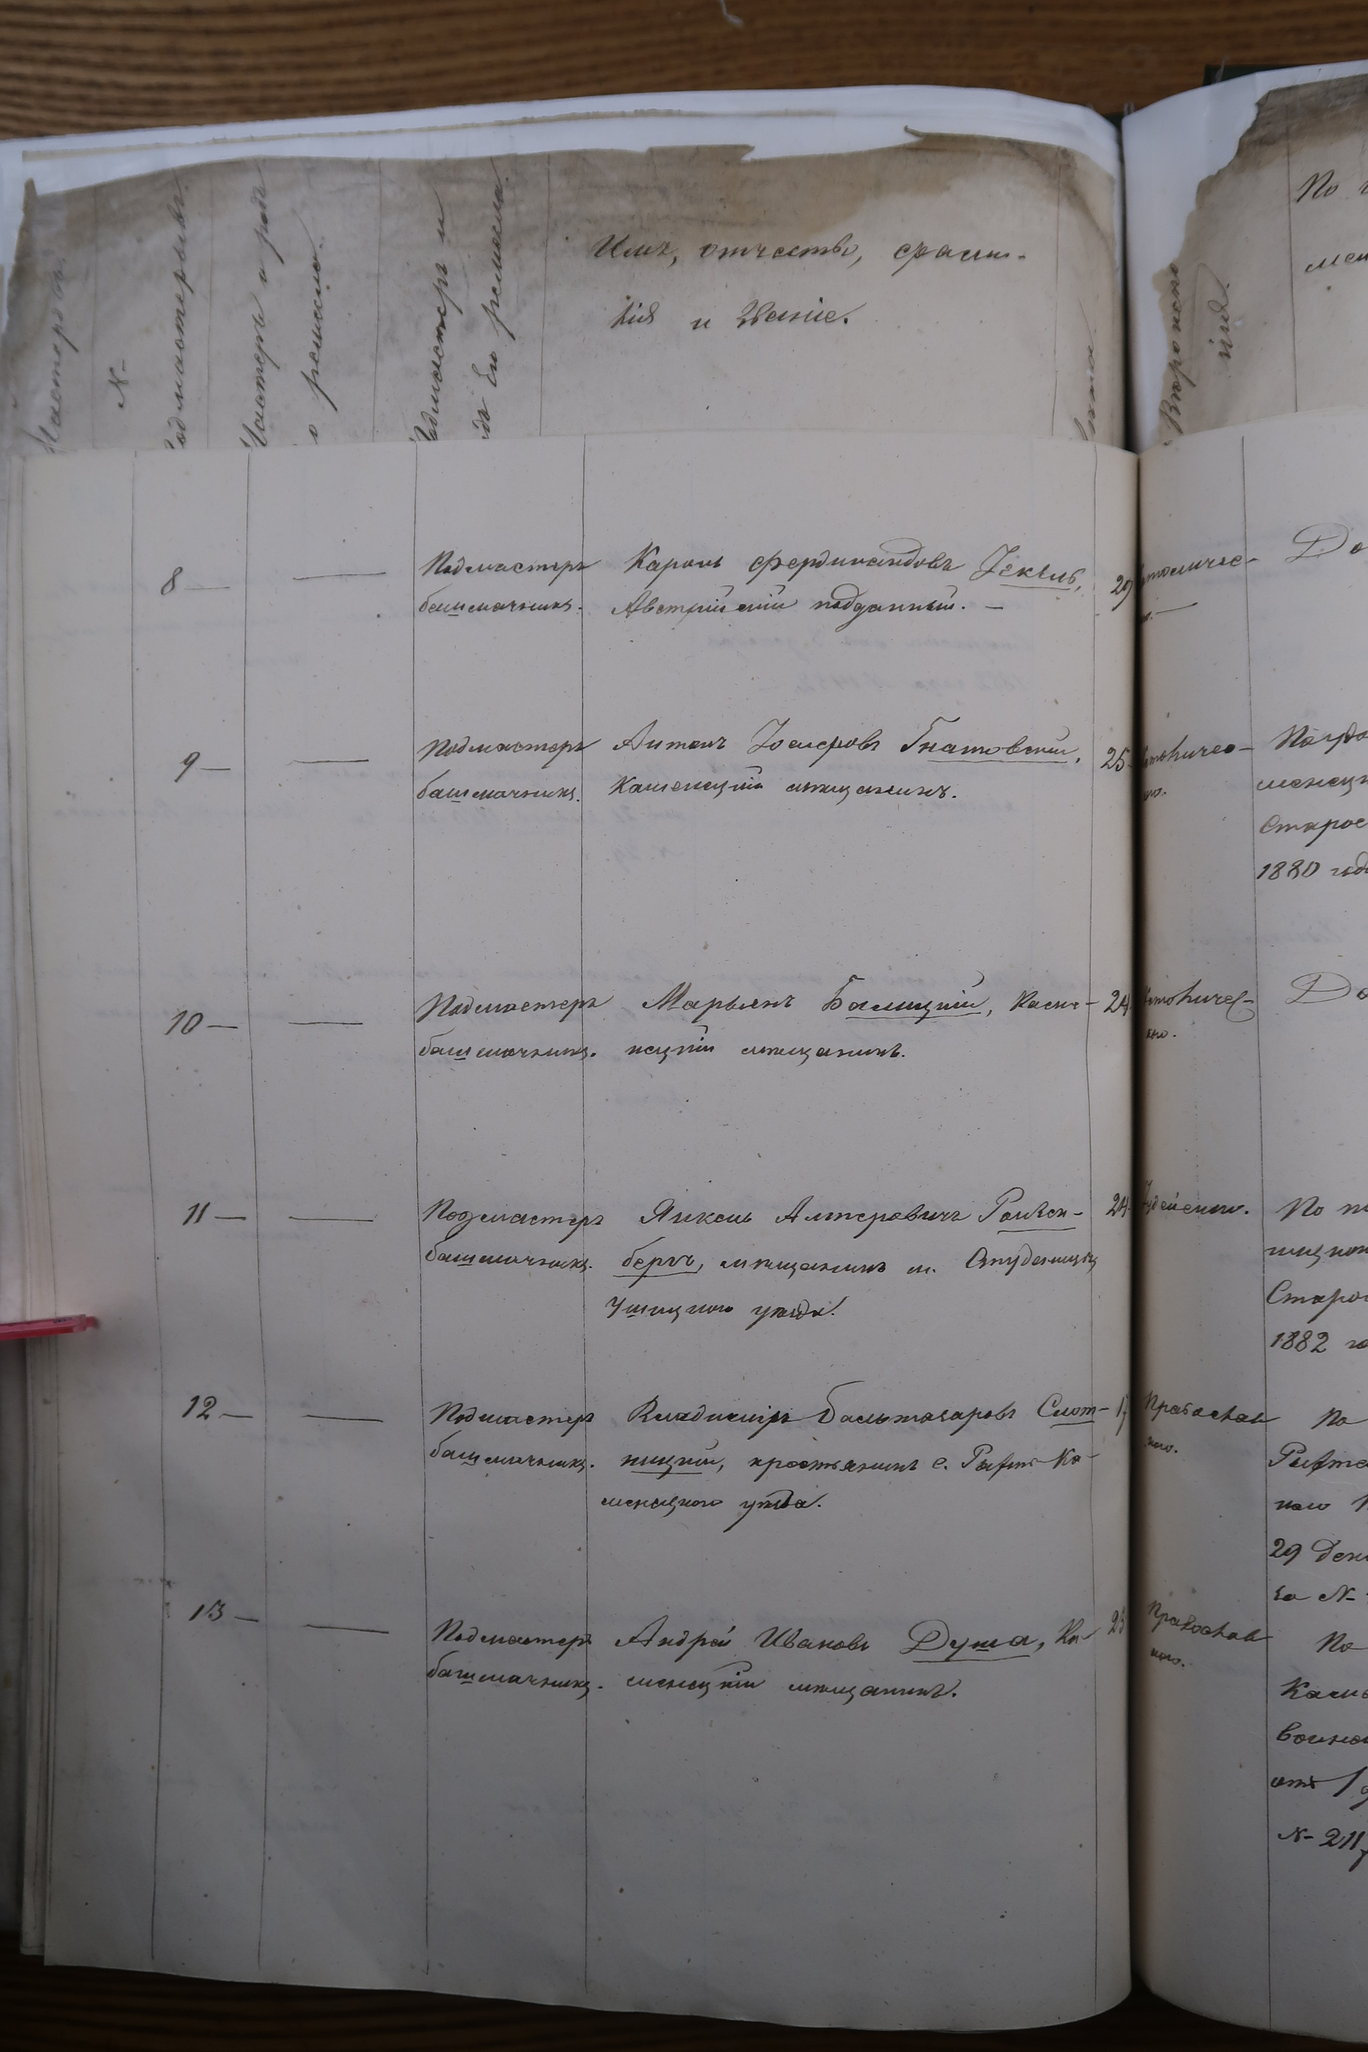 Мастеровъ.
№
Подмастерьевъ
Мастеръ и родъ
его ремесла.
Подмастеръ и
родъ его ремесла.
Имя, отчество, фами-
лія и званіе.
Лета
Вѣроисповѣ
ніе.
По
8 —
Подмастеръ
башмачникъ.
Кароль Фердинандовъ Іекель,
Австрійскій подданный. —
29
католичес-
До
9 —
Подмастеръ
башмачникъ.
Антонъ Іосифовъ Гнатовскій,
Каменецкій мѣщанинъ.
25
католичес-
каго.
менецк
Старос
1880 года
10 —
Подмастеръ
башмачникъ.
Марьянъ Балицкій, Каме-
нецкій мѣщанинъ.
24
католичес-
каго.
До
11 —
Подмастеръ
башмачникъ.
Янкель Алтеровичъ Розен-
бергъ, мѣщанинъ м. Студеницы
Ушицкаго уѣзда.
24
Іудейскаго.
По
Старос
1882 го
12 —
Подмастеръ
башмачникъ.
Владиміръ Бальтазаровъ Слот-
ницкій, крестьянинъ с. Рыхты Ка-
менецкаго уѣзда.
17
Православ
наго.
По
Рыхте
29 Дек
за №
13 —
Подмастеръ
башмачникъ.
Андрей Ивановъ Душа, Ка-
менецкій мѣщанинъ.
Православ
наго.
По
Каме
воинс
отъ 19
№ 2117